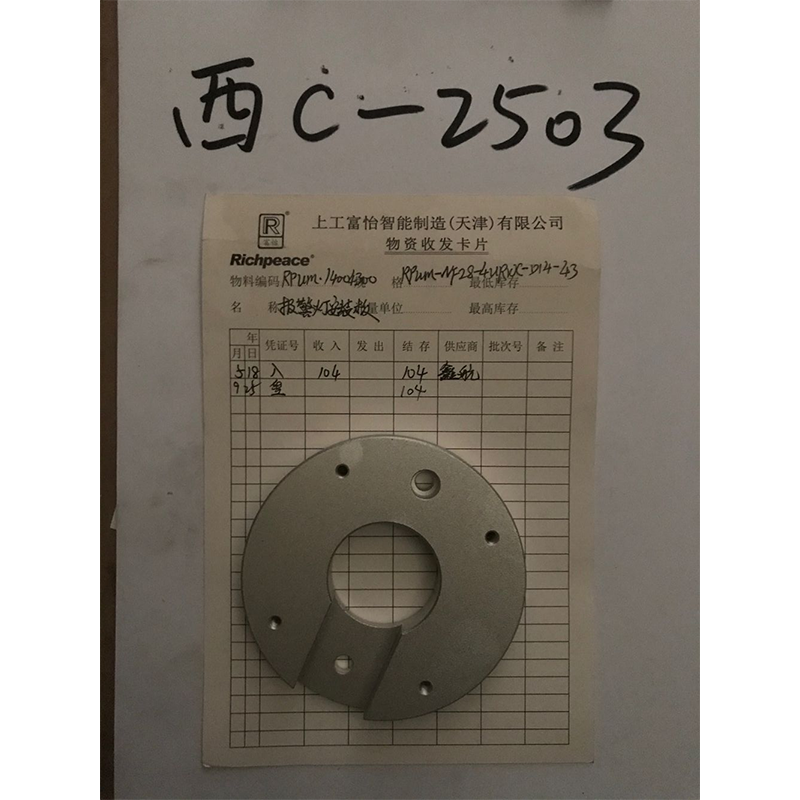 西C-2503
上工富怡智能制造(天津)有限公司
R®
富怡
物资收发卡片
Richpeace®
物料编码 格 RPUM-NF-28-4URWC-D14-43 最低库存
名 称 报警灯安装板 量单位 最高库存
年
月 日 凭证号 收入 发出 结存 供应商 批次号 备注
5 18 入 104 104 鑫航
9 25 104